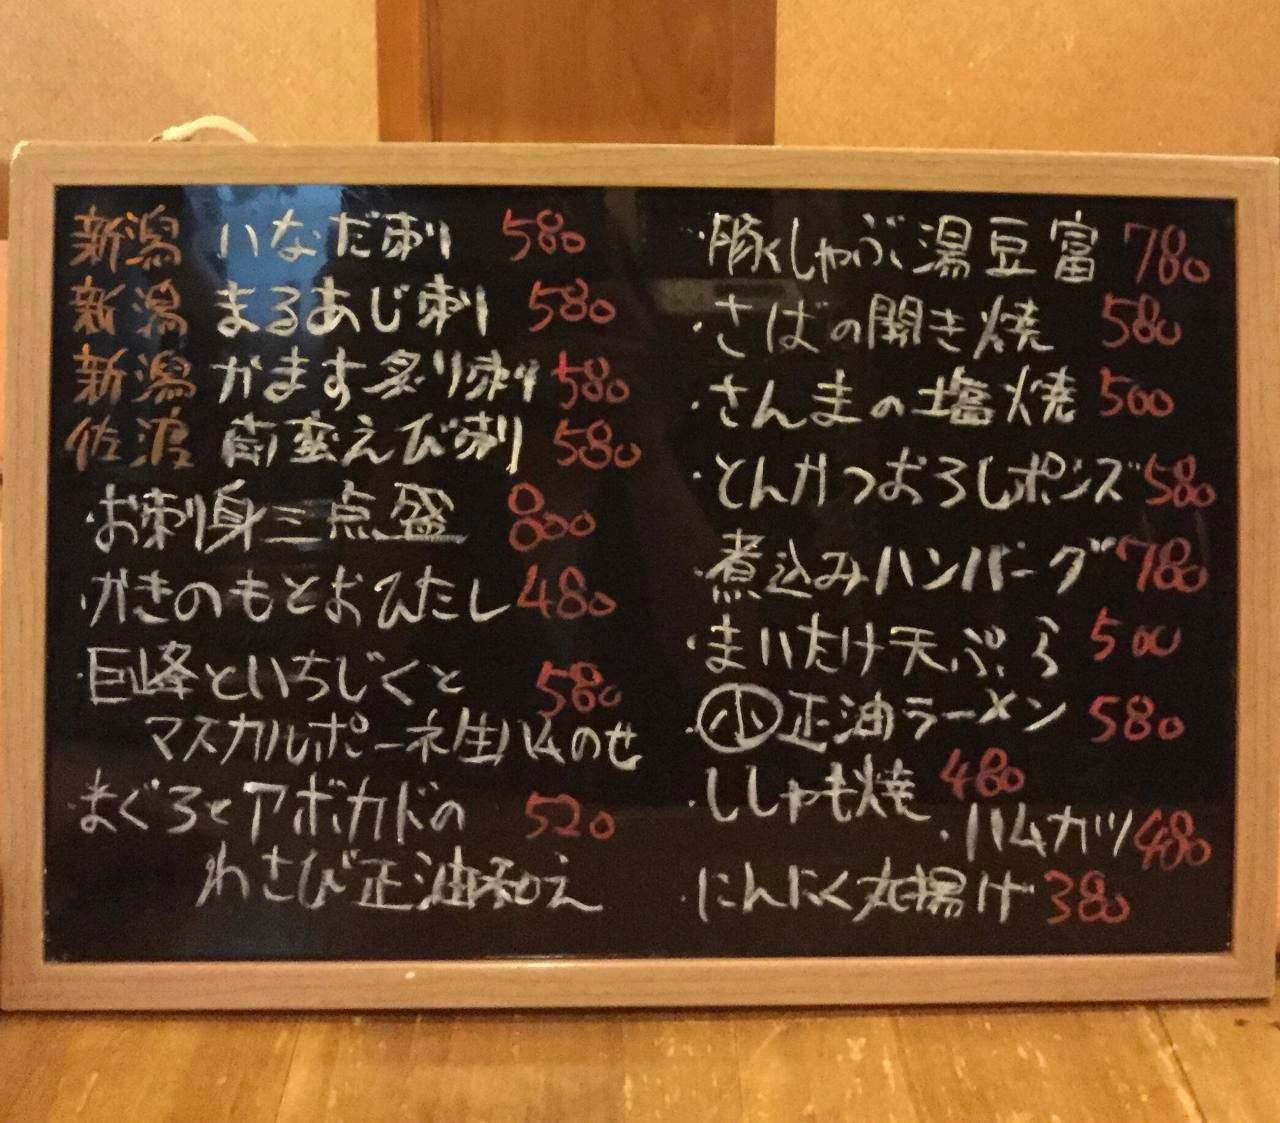 新潟 いなだ刺 580
新潟 まるあじ刺 580
新潟 かます炙り刺 580
佐渡 南蛮えび刺 580
・お刺身三点盛 800
・かきのもとおひたし 480
・巨峰といちじくと 580
マスカルポーネ生ハムのせ
・まぐろとアボカドの 520
わさび正油和え
・豚しゃぶ湯豆富 780
・さばの開き焼 580
・さんまの塩焼 500
・とんかつおろしポンズ 580
・煮込みハンバーグ 780
・まいたけ天ぷら 500
・小正油ラーメン 580
・ししゃも焼 480
・ハムカツ 480
・にんにく丸揚げ 380